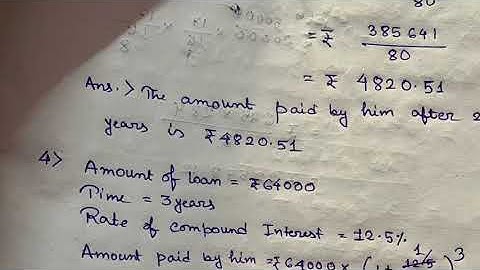 80
= ₹ 385641
80
= ₹ 4820.51
Ans. > The amount paid by him after 2
years is ₹4820.51
4> Amount of loan = ₹64000
Time = 3 years
Rate of compound Interest = 12.5%
Amount paid by him = ₹64000 × (1+ 1/ 12.5 )3